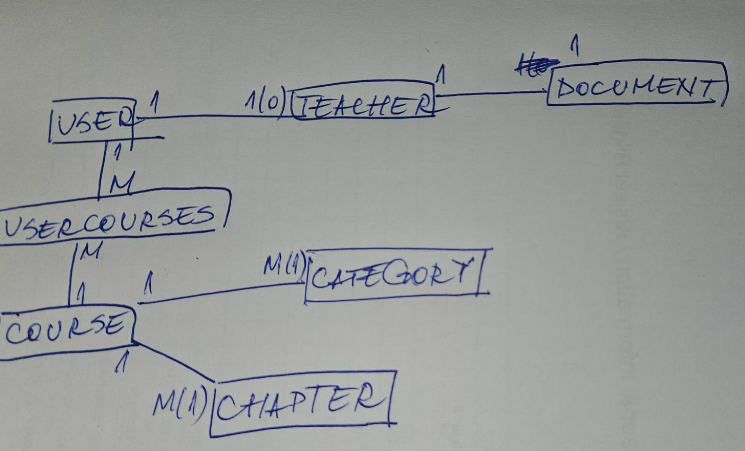 1
1 1(0) TEACHER 1 DOCUMENT
USER
1
M
USERCOURSES
M
1 1 M(1) CATEGORY
COURSE
1
M(1) CHAPTER